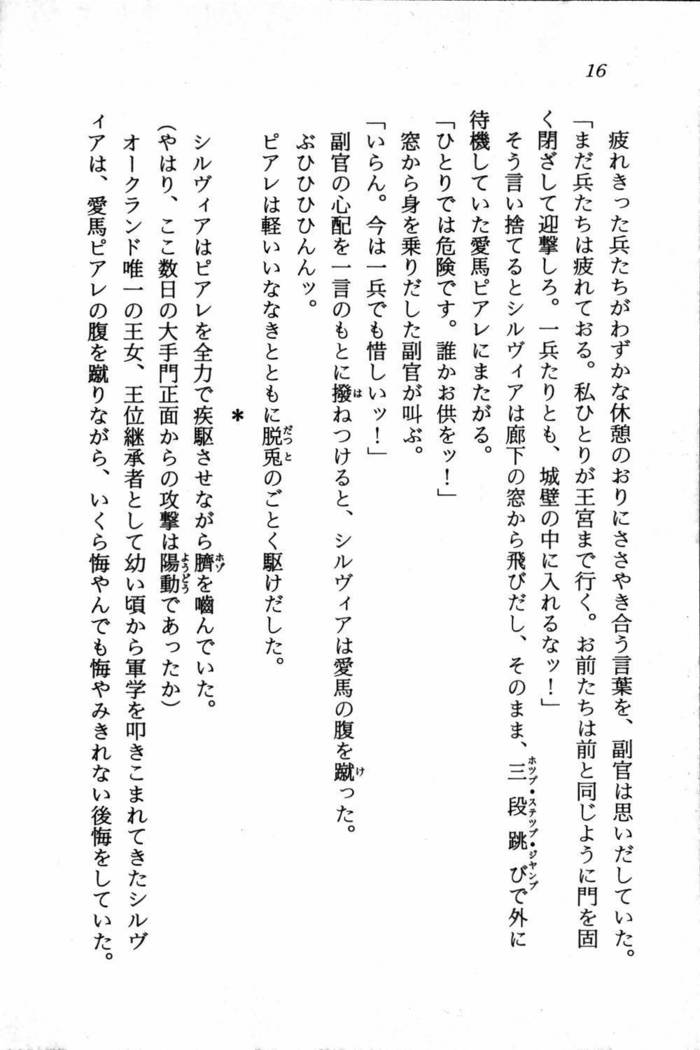 16
疲れきった兵たちがわずかな休憩のおりにささやき合う言葉を、副官は思いだしていた。
「まだ兵たちは疲れておる。私ひとりが王宮まで行く。お前たちは前と同じように門を固
く閉ざして迎撃しろ。一兵たりとも、城壁の中に入れるなッ！」
そう言い捨てるとシルヴィアは廊下の窓から飛びだし、そのまま、三段跳びで外に
ホップ・ステップ・ジャンプ
待機していた愛馬ピアレにまたがる。
「ひとりでは危険です。誰かお供をッ！」
窓から身を乗りだした副官が叫ぶ。
「いらん。今は一兵でも惜しいッ！」
副官の心配を一言のもとに撥ねつけると、シルヴィアは愛馬の腹を蹴った。
は
け
ぶひひひひんんッ。
ピアレは軽いいななきとともに脱兎のごとく駆けだした。
だっと
*
シルヴィアはピアレを全力で疾駆させながら臍を嚙んでいた。
ホゾ
(やはり、ここ数日の大手門正面からの攻撃は陽動であったか)
ようどう
オークランド唯一の王女、王位継承者として幼い頃から軍学を叩きこまれてきたシルヴ
ィアは、愛馬ピアレの腹を蹴りながら、いくら悔やんでも悔やみきれない後悔をしていた。